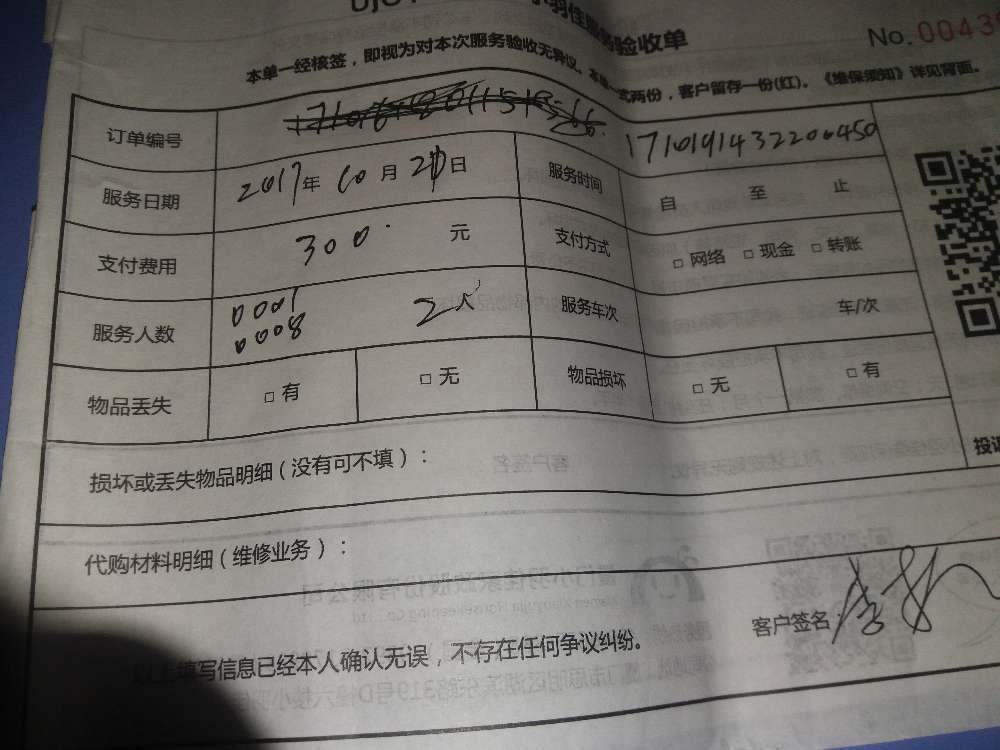 小羽佳服务验收单
No.0043
本单一经核签，即视为对本次服务验收无异议。本单一式两份，客户留存一份(红)。《维保须知》详见背面。
订单编号 1710191432200450
服务日期 2017年10月20日 服务时间 自 至 止
支付费用 300 元 支付方式 □ 网络 □ 现金 □ 转账
服务人数 0001 0008 2人 服务车次 车/次
物品丢失 □ 有 □ 无 物品损坏 □ 无 □ 有
损坏或丢失物品明细（没有可不填）：
投诉
代购材料明细（维修业务）：
客户签名：
以上填写信息已经本人确认无误，不存在任何争议纠纷。